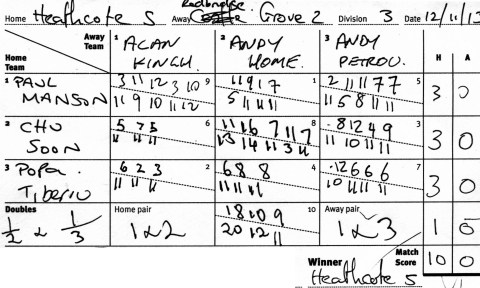 Home Heathcote 5 Away Redbridge Grove 2 Division 3 Date 12/11/13
Away Team 1 ALAN KINGH. 2 ANDY HOME. 3 ANDY PETROU. H A
Home Team
1 PAUL MANSON 3 11 12 3 10 9 11 9 1 7 1 2 11 11 7 7 5 3 0
11 9 10 11 12 5 11 11 11 11 5 8 11 11
2 CHU SOON 5 7 5 6 11 16 7 11 7 8 -8 12 4 9 3 3 0
11 11 11 13 14 11 3 11 11 10 11 11
3 POPA. Tiberiu 6 2 3 2 6 8 8 4 -12 6 6 6 7 3 0
11 11 11 11 11 11 10 11 11 11
Doubles Home pair 18 10 9 10 Away pair
1/2 & 1/3 1&2 20 12 11 1&3 1 0
Winner Heathcote 5 Match Score 10 0